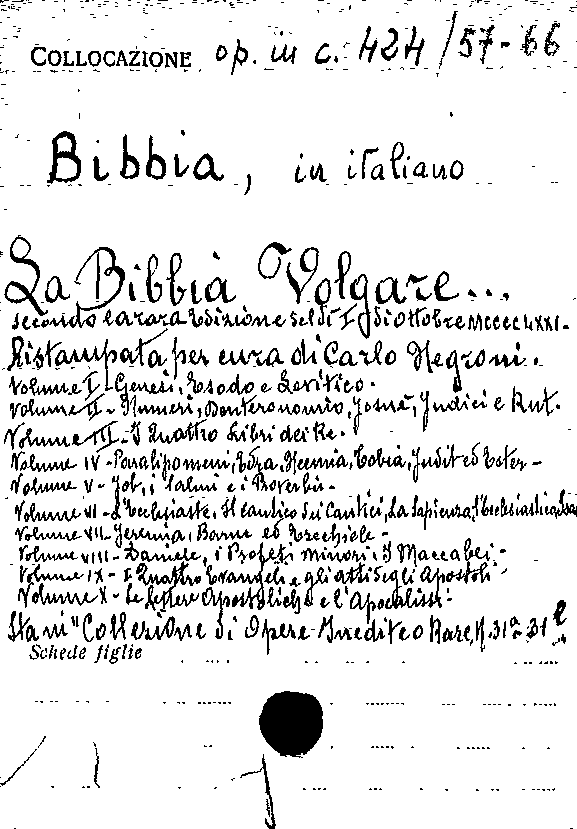 COLLOCAZIONE op. in c. 424/57-66
Bibbia, in italiano
La Bibbia Volgare...
secondo la rara Edizione del di I di Ottobre MCCCCLXXI.
Ristampata per cura di Carlo Negroni.
Volume I - Genesi, Esodo e Levitico.
Volume II - Numeri, Deuteronomio, Josuè, Judici e Rut.
Volume III - I Quattro Libri dei Re.
Volume IV - Paralipomeni, Esdra, Neemia, Tobia, Judit ed Ester -
Volume V - Job, i Salmi e i Proverbi -
Volume VI - L'Ecclesiaste, Il Cantico dei Cantici, La Sapienza, l'Ecclesiastico,
Volume VII - Jeremia, Baruc ed Ezechiele -
Volume VIII - Daniele, i Profeti minori, I Maccabei -
Volume IX - I Quattro Evangeli e gli atti degli Apostoli
Volume X - Le lettere Apostoliche e l'Apocalissi -
Sta in "Collezione di Opere Inedite o Rare, N. 31a - 31l
Schede figlie